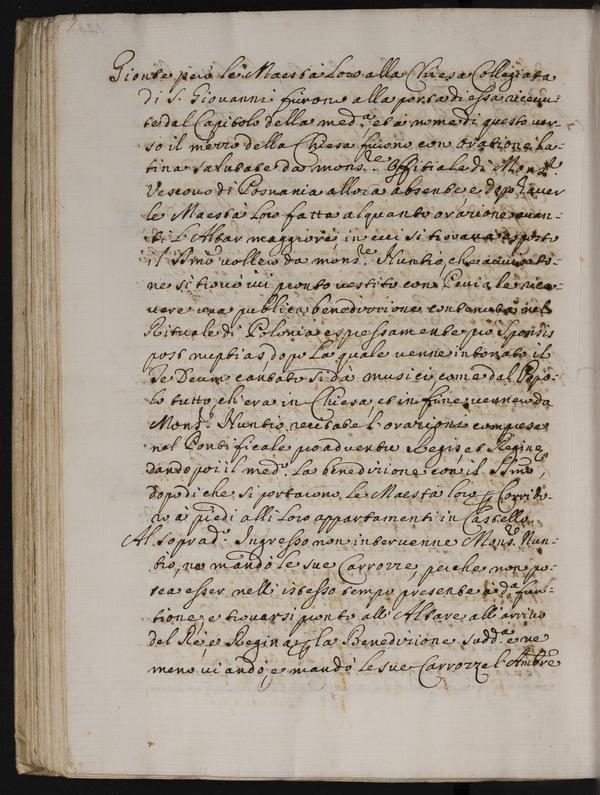 Gionte però le Maestà Loro alla Chiesa Collegiata
di S. Giovanni furono alla porta di essa riceuu-
te dal Capitolo della med.a, et à nome di questo ver-
so il mezzo della Chiesa furono con oratione la-
tina salutate da mons.re Offitiale di Mons.r
Vescovo di Posnania allora absente, e dopo haver
le Maestà Loro fatta alquanto orazione avan-
ti l'Altar maggiore, in cui si trovava esposto
il S.smo vollero da mons.re Nuntio, che
ne si trovò ivi pronto vestito con Pluviale rice-
vere una publica benedizzione contenuta nel
Rituale di Polonia espressamente pro Sponsis
post nuptias, dopo la quale venne intonato il
Te Deum cantato sì da musici come dal Popo-
lo tutto, ch'era in Chiesa, et in fine vennero da
Mons.re Nuntio recitate l'orazioni compuse
nel Pontificale pro adventu Regis et Reginę
dando poi il med.o la benedizione con il S.smo,
dopo di che si portarono le Maestà loro p Corrido-
ro à piedi alli loro appartamenti in Castello.
Al soprad.o Ingresso non intervenne Mons.re Nun-
tio, nè mandò le sue Carrozze, perche non po-
tea esser nell'istesso tempo presente à d.a fun-
tione, e trovarsi pronto all'Altare all'arrivo
del Rè, e Regina p la Benedizione sudd.a, e ne
meno vi andò, e mandò le sue Carrozze l'Ambre